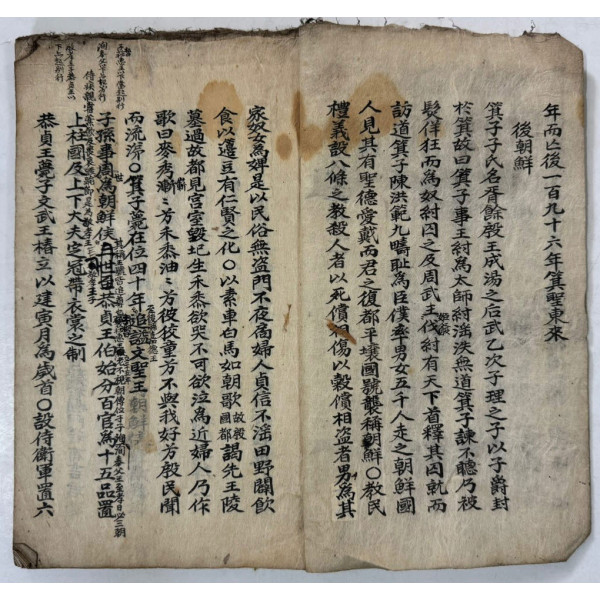 年而亡後一百九十六年箕聖東來
後朝鮮
箕子子氏名胥餘殷王成湯之后武乙次子理之子以子爵封
於箕故曰箕子事王紂為太師紂淫泆無道箕子諫不聽乃被
髮佯狂而為奴紂囚之及周武王伐紂有天下首釋其囚就而
訪道箕子陳洪範九疇耻為臣僕率男女五千人走之朝鮮國
人見其有聖德愛戴而君之復都平壤國號襲稱朝鮮〇教民
禮義設八條之教殺人者以死償相傷以穀償相盜者男為其
家奴女為婢是以民俗無盜門不夜扃婦人貞信不淫田野闢飲
食以籩豆有仁賢之化〇以素車白馬如朝歌故殷國都謁先王陵
墓過故都見宮室毀圮生禾黍欲哭不可欲泣為近婦人乃作
歌曰麥秀漸漸方禾黍油油方彼狡童方不與我好方殷民聞
而流涕〇箕子薨在位四十年追謚文聖王
子孫事周為朝鮮侯 恭貞王伯始分百官為十五品置
上柱國及上下大夫定冠帶衣裳之制
恭貞王薨子文武王椿立以建寅月為歲首〇設侍衛軍置六